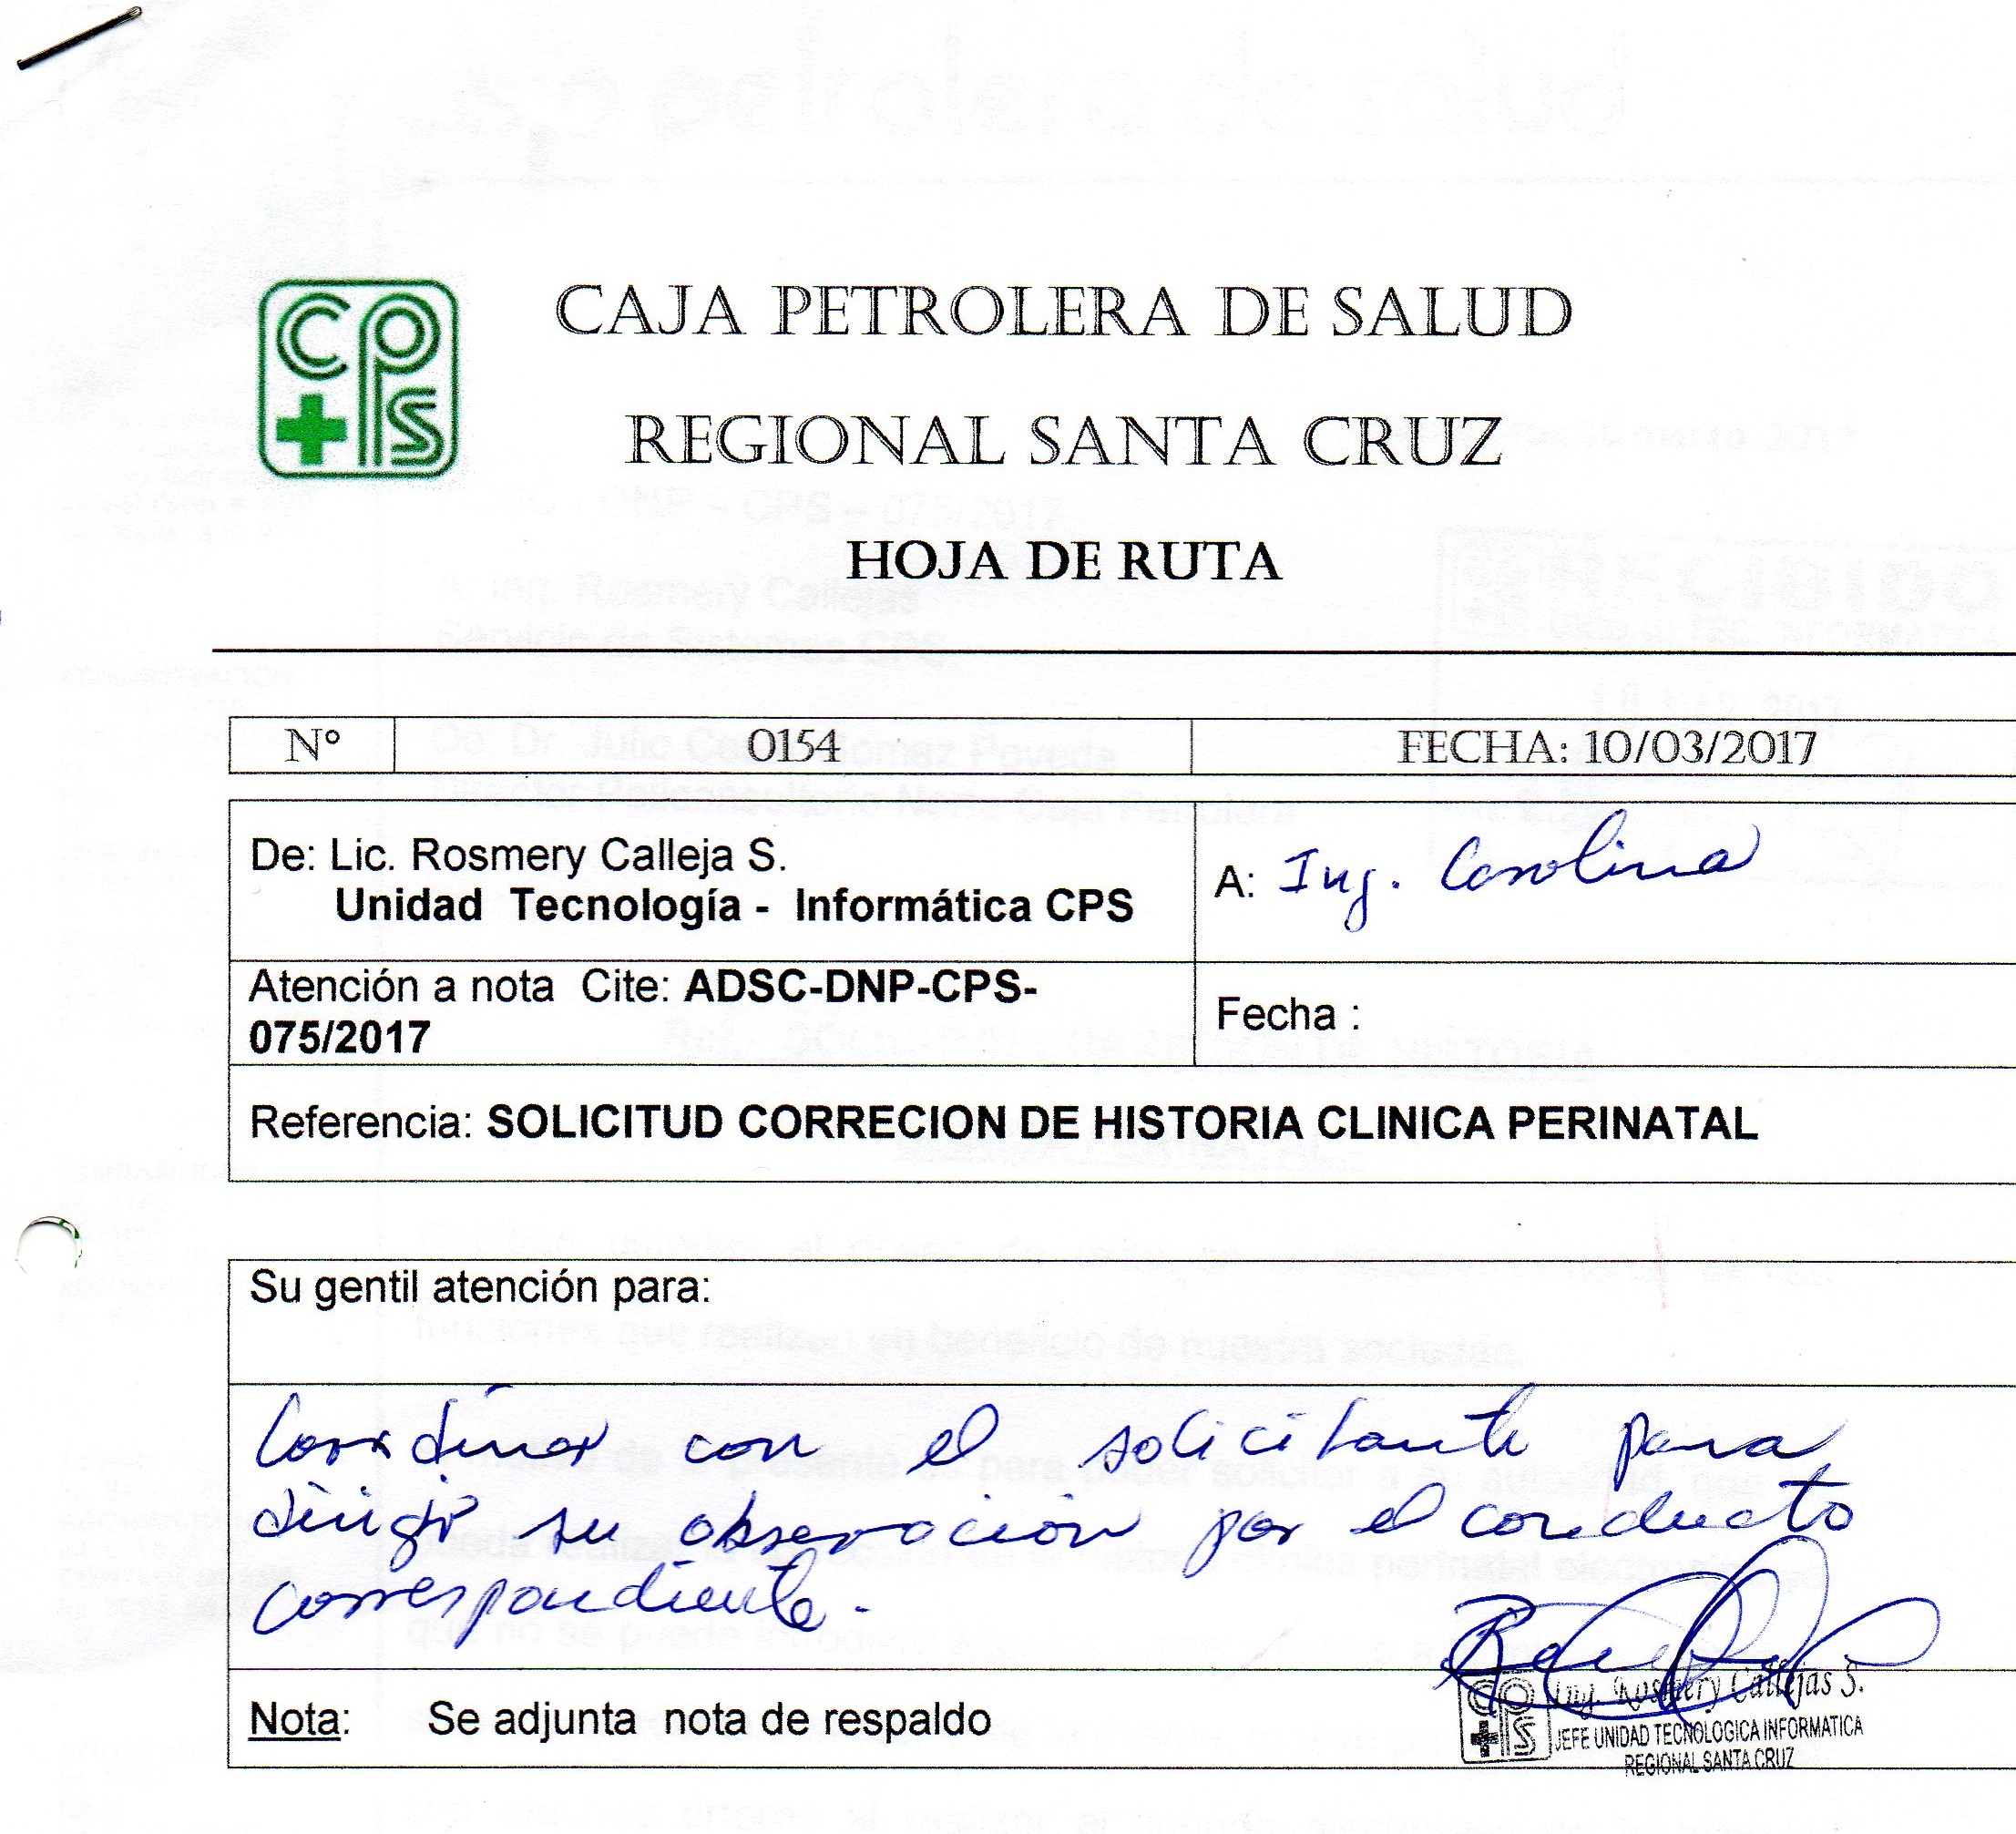 CPS
CAJA PETROLERA DE SALUD
REGIONAL SANTA CRUZ
HOJA DE RUTA
N° 0154 FECHA: 10/03/2017
De: Lic. Rosmery Calleja S.
Unidad Tecnología - Informática CPS
A: Ing. Carolina
Atención a nota Cite: ADSC-DNP-CPS-
075/2017
Fecha :
Referencia: SOLICITUD CORRECION DE HISTORIA CLINICA PERINATAL
Su gentil atención para:
Coordinar con el solicitante para
dirigir su observación por el conducto
correspondiente.
Nota: Se adjunta nota de respaldo
CPS
Ing. Rosmery Callejas S.
JEFE UNIDAD TECNOLOGICA INFORMATICA
REGIONAL SANTA CRUZ